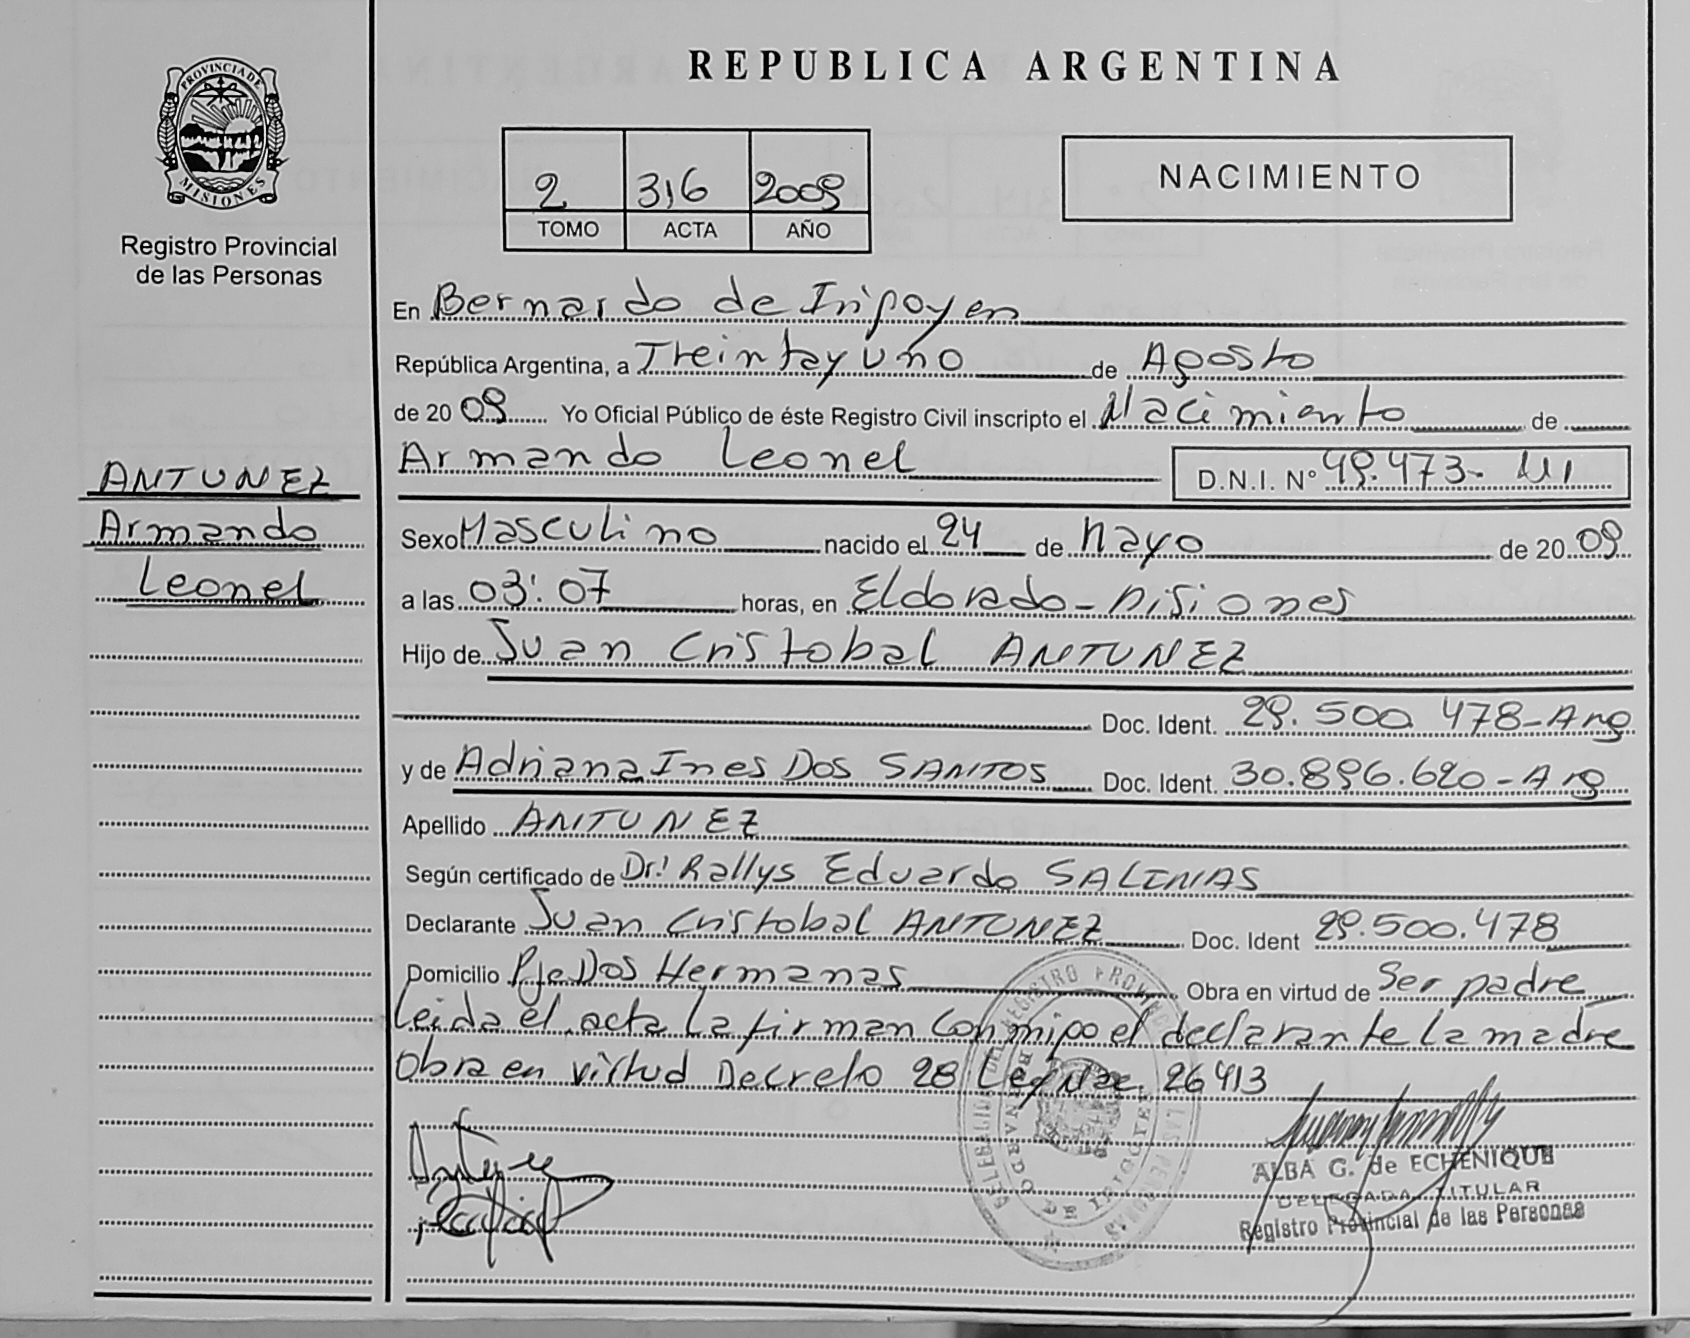 REPUBLICA ARGENTINA
PROVINCIA DE
MISIONES
Registro Provincial
de las Personas
2 316 2009
TOMO ACTA AÑO
NACIMIENTO
En Bernardo de Iripoyen
República Argentina, a Treinta y uno de Agosto
de 2009 Yo Oficial Público de éste Registro Civil inscripto el Nacimiento de
Armando Leonel D.N.I. Nº 49.473-
ANTUNEZ
Armando
Leonel
Sexo Masculino nacido el 24 de Mayo de 2009
a las 03:07 horas, en Eldorado - Misiones
Hijo de Juan Cristobal ANTUNEZ
Doc. Ident. 29.500.478-Arg
y de Adriana Ines DOS SANTOS Doc. Ident. 30.896.620-Arg
Apellido ANTUNEZ
Según certificado de Dr. Rallys Eduardo SALINAS
Declarante Juan Cristobal ANTUNEZ Doc. Ident 29.500.478
Domicilio Pje Dos Hermanas Obra en virtud de Ser padre
Leida el acta La firman Conmigo el declarante La madre
Obra en virtud Decreto 28 Ley Nac. 26413
ALBA G. de ECHENIQUE
DELEGADA TITULAR
Registro Provincial de las Personas